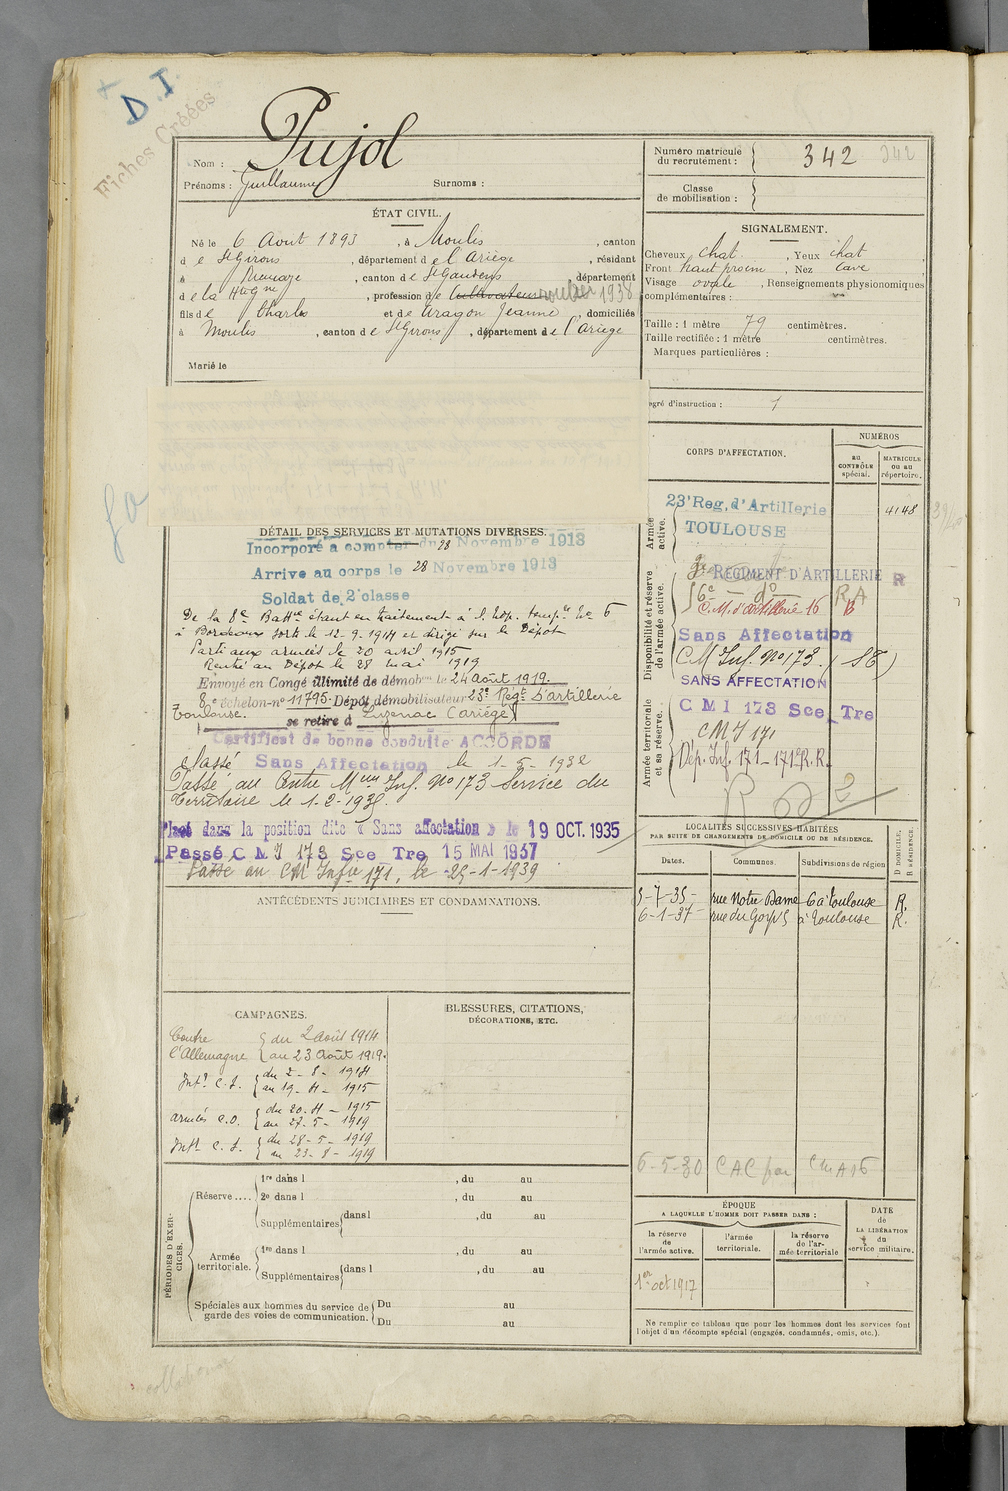 D.I.
Fiches Créées
Nom : Pujol
Prénoms : Guillaume Surnoms :
Numéro matricule du recrutement : 342 342
Classe de mobilisation :
ÉTAT CIVIL.
Né le 6 Août 1893, à Moulis, canton
de St Girons, département de l'Ariège, résidant
à, canton de St Gaudens, département
de la Hte Gne, profession de Cultivateur 1938
fils de Charles et de Aragon Jeanne, domiciliés
à Moulis, canton de St Girons, département de l'Ariège
Marié le
SIGNALEMENT.
Cheveux chat., Yeux chat
Front haut proém, Nez cave
Visage ovale, Renseignements physionomiques
complémentaires :
Taille : 1 mètre 79 centimètres.
Taille rectifiée : 1 mètre centimètres.
Marques particulières :
egré d'instruction : 1
CORPS D'AFFECTATION.
NUMÉROS
au CONTRÔLE spécial.
MATRICULE ou au répertoire.
Armée active.
23e Reg. d'Artillerie 4148
TOULOUSE
Disponibilité et réserve de l'armée active.
REGIMENT D'ARTILLERIE R
16e — do — RA
C.M. d'artillerie 16 B
Sans Affectation
CM Inf. No 173. (SE)
SANS AFFECTATION
Armée territoriale et sa réserve.
C M I 173 Sce Tre
CMI 171
Dép. Inf. 171 - 171e R.R.
DÉTAIL DES SERVICES ET MUTATIONS DIVERSES.
Incorporé à compter du 28 Novembre 1913
Arrivé au corps le 28 Novembre 1913
Soldat de 2e classe
De la 8e Battie étant en traitement à l'Hôp. temp.re No 6
à Bordeaux sorti le 12-9-1914 et dirigé sur le Dépôt
Parti aux armées le 20 avril 1915
Rentré au Dépôt le 28 mai 1919
Envoyé en Congé illimité de démob.on le 24 août 1919.
8e échelon-no 11795. Dépôt démobilisateur 23e Régt d'artillerie
Toulouse. se retire à Luzenac (Ariège)
Certificat de bonne conduite ACCORDÉ
Classé Sans Affectation le 1-5-1932
Passé au Centre Mon Inf. No 173 Service du
Territoire le
Placé dans la position dite « Sans affectation » le 19 OCT. 1935
Passé C M I 173 Sce Tre 15 MAI 1937
Passé au CM Infie 171, le 25-1-1939
LOCALITÉS SUCCESSIVES HABITÉES
PAR SUITE DE CHANGEMENTS DE DOMICILE OU DE RÉSIDENCE.
Dates. Communes. Subdivisions de région
D DOMICILE. R RÉSIDENCE.
5-7-35- rue Notre Dame 6 à Toulouse R.
6-1-37- rue du à Toulouse R.
6-5-30 CAC par CMA 16
ANTÉCÉDENTS JUDICIAIRES ET CONDAMNATIONS.
CAMPAGNES.
Contre l'Allemagne du 2 août 1914
au 23 août 1919.
Intr C.S. du 2-8-1914
au 19-4-1915
armées C.D. du 20-4-1915
au 27-5-1919
Intr C.S. du 28-5-1919
au 23-8-1919
BLESSURES, CITATIONS,
DÉCORATIONS, ETC.
PÉRIODES D'EXERCICES.
Réserve.... 1re dans l , du au
2e dans l , du au
Supplémentaires dans l , du au
Armée territoriale. 1re dans l , du au
Supplémentaires dans l , du au
Spéciales aux hommes du service de Du au
garde des voies de communication. Du au
ÉPOQUE
A LAQUELLE L'HOMME DOIT PASSER DANS :
la réserve de l'armée active.
l'armée territoriale.
la réserve de l'armée territoriale
DATE de LA LIBÉRATION du service militaire.
1er oct 1917
Ne remplir ce tableau que pour les hommes dont les services font
l'objet d'un décompte spécial (engagés, condamnés, omis, etc.).